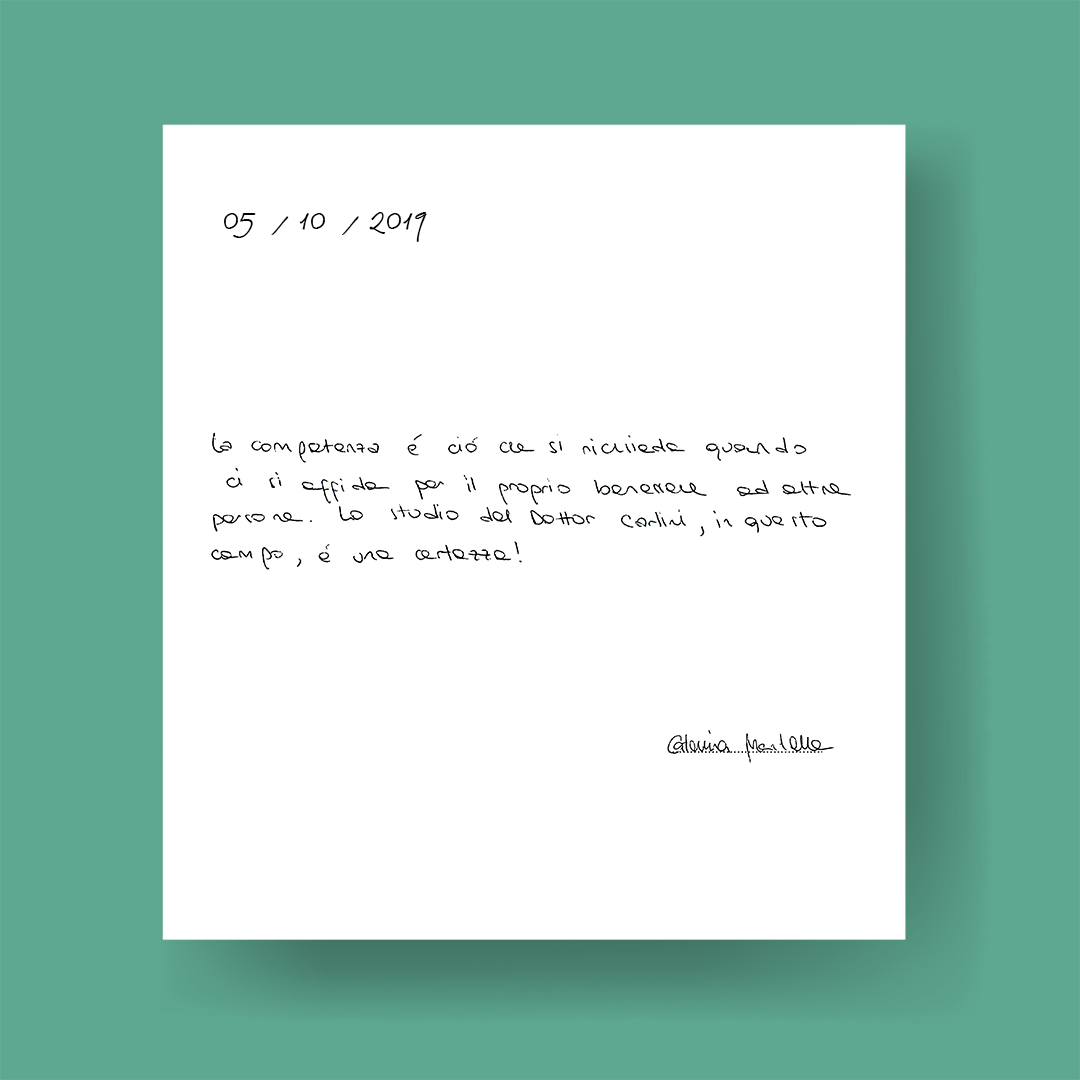 05 / 10 / 2019
La competenza é ció che si richiede quando
ci si affida per il proprio benessere ad altre
persone. Lo studio del Dottor Carlini, in questo
campo, é una certezza!
Caterina